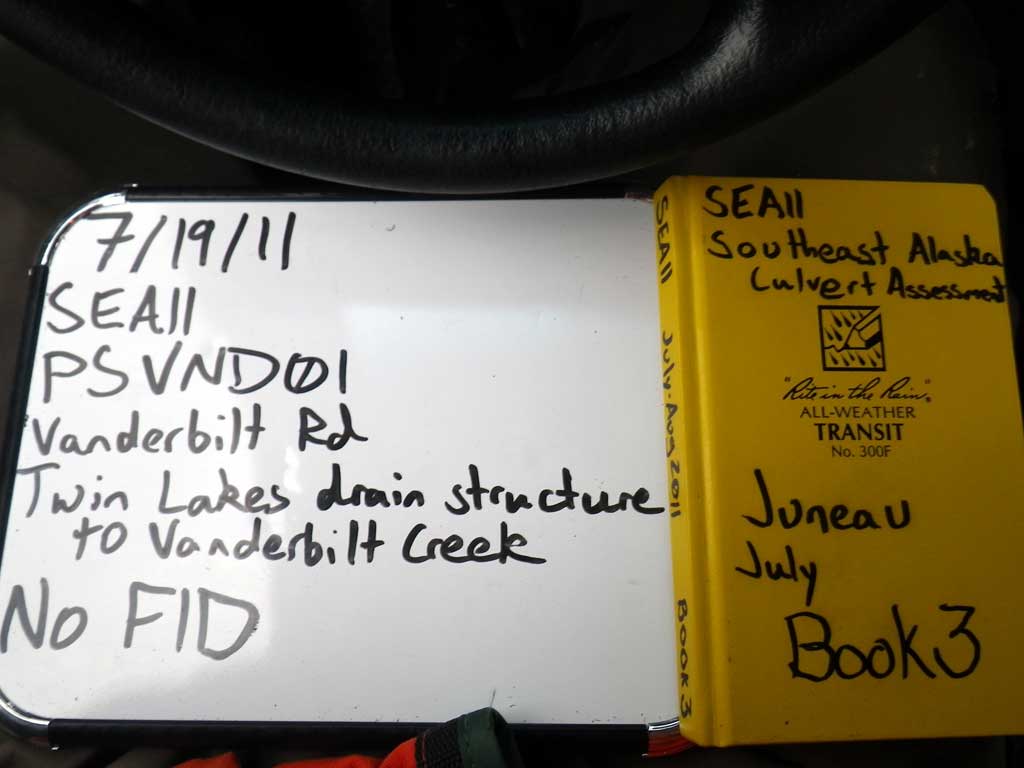 7/19/11
SEA11
PSVND01
Vanderbilt Rd
Twin Lakes drain structure
to Vanderbilt Creek
No FID
SEA11 July-Aug 2011 BOOK 3
SEA11
Southeast Alaska
Culvert Assessment
"Rite in the Rain"®
ALL-WEATHER
TRANSIT
No. 300F
Juneau
July
Book 3